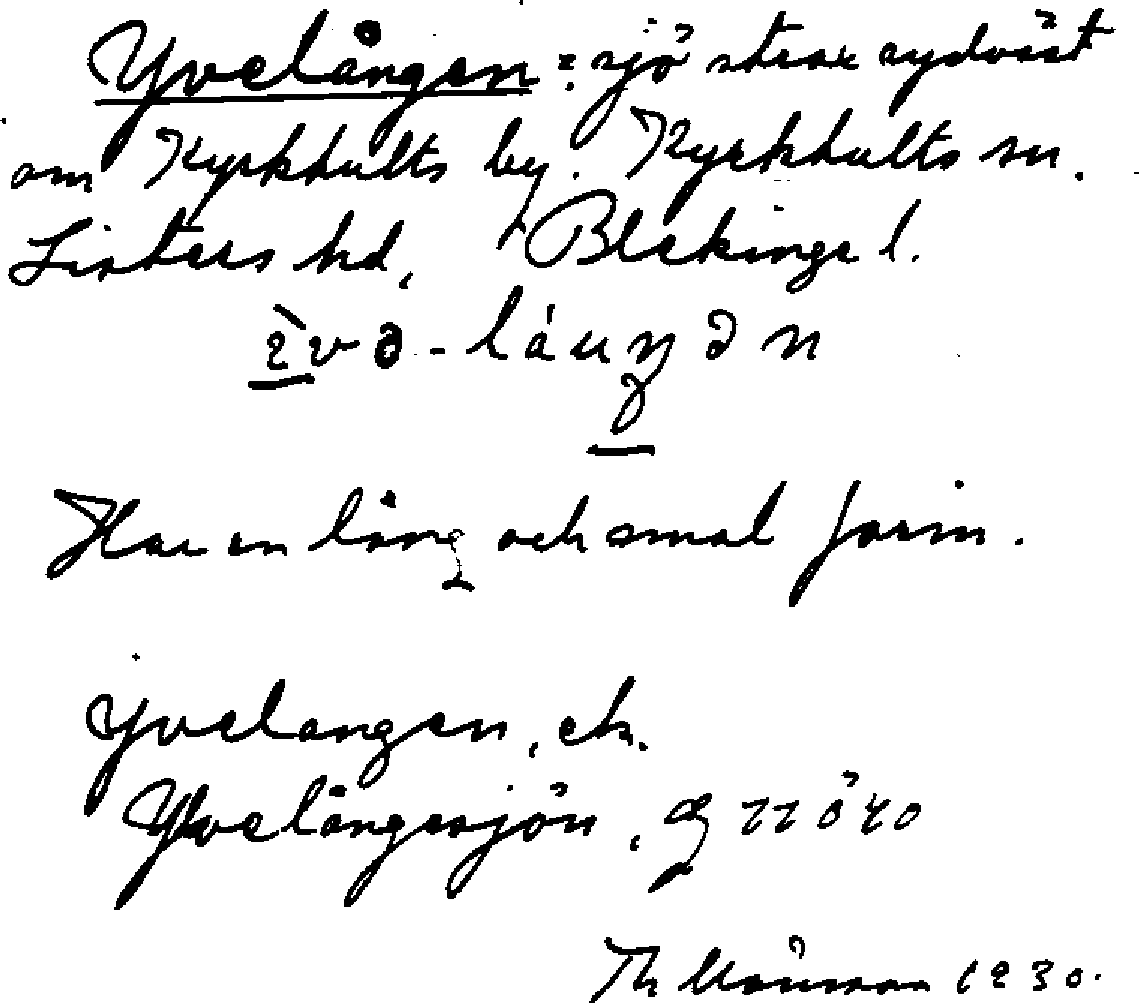 Yvelången = sjö strax sydväst
om Kyrkhults by. Kyrkhults sn.
Listers hd, Blekinge l.
ìvə-láuŋən
Har en lång och smal form.
Yvelangen, ek.
Yvelångesjön,
Th 1930.